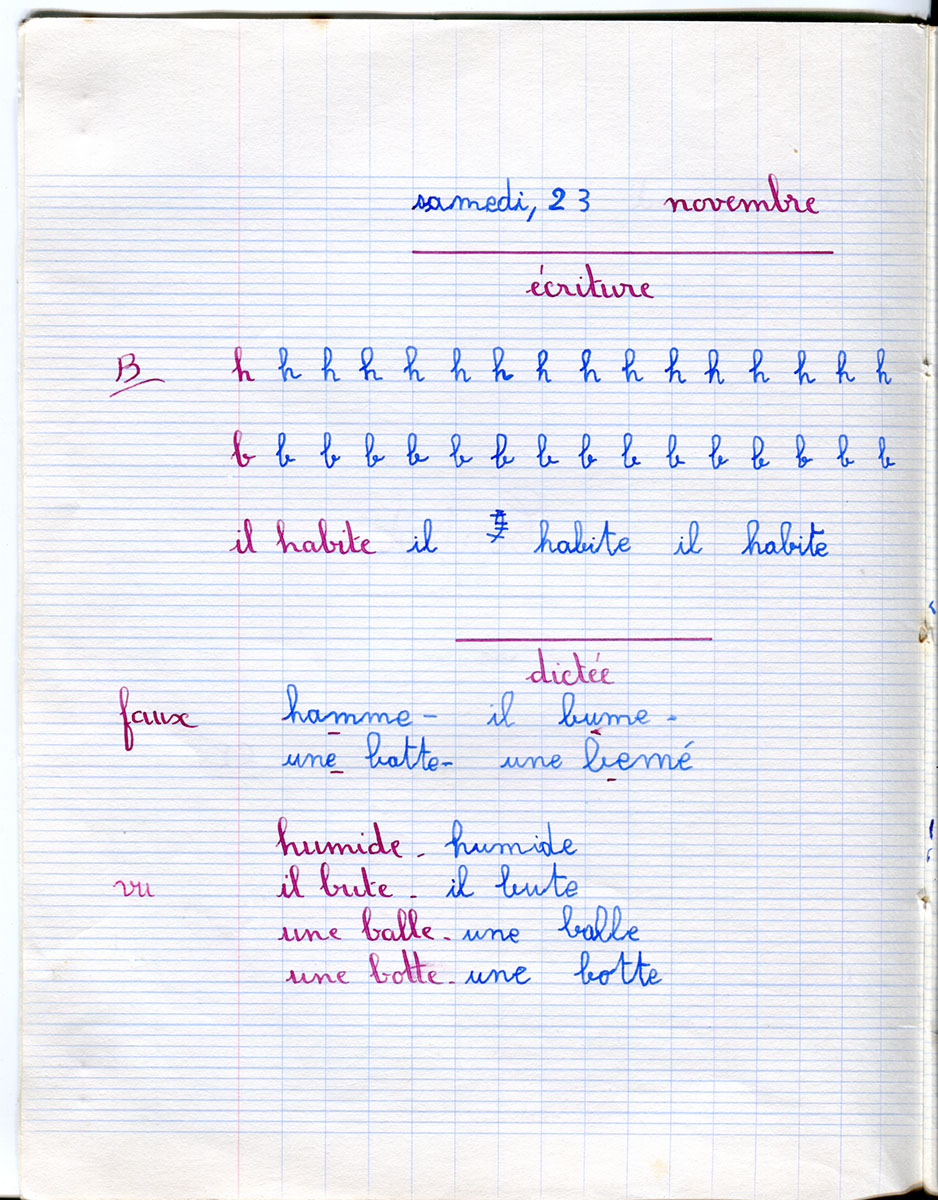 samedi, 23 novembre
écriture
B h h h h h h h h h h h h h h h h
b b b b b b b b b b b b b b b b
il habite il habite il habite
dictée
faux hamme - il bume -
une batte - une bemé
humide - humide
vu il bute - il bute
une balle - une balle
une botte - une botte